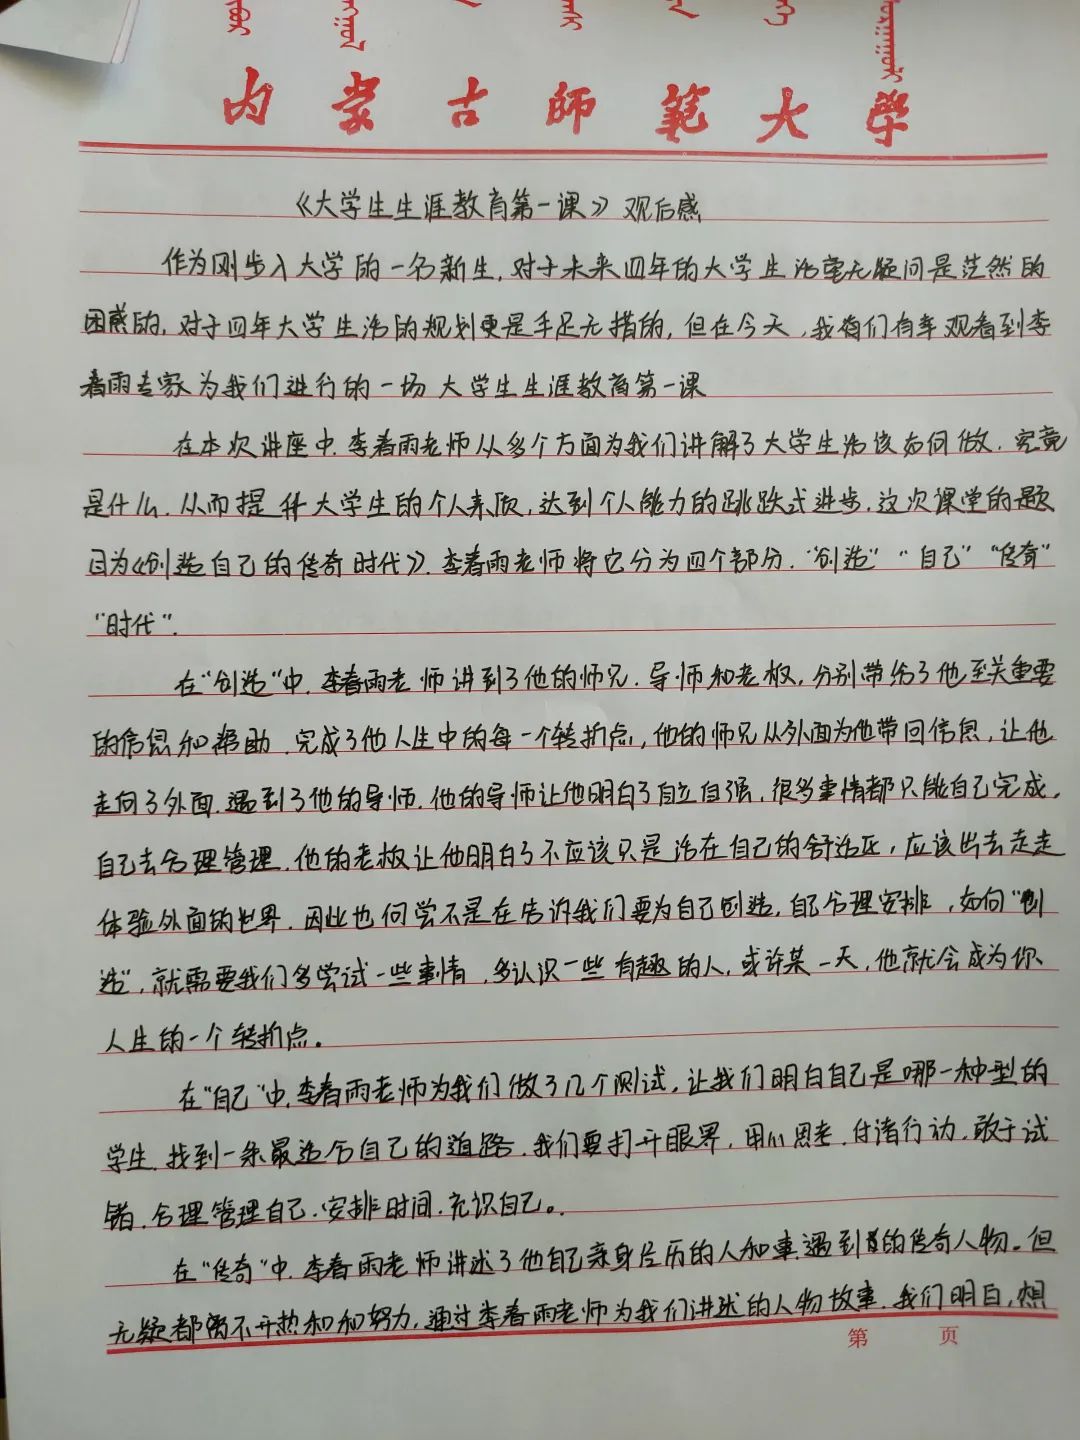 内蒙古师范大学
《大学生生涯教育第一课》观后感
作为刚步入大学的一名新生,对于未来四年的大学生活毫无疑问是茫然的
困惑的,对于四年大学生活的规划更是手足无措的,但在今天,我们有幸观看到李
春雨专家为我们进行的一场大学生生涯教育第一课
在本次讲座中,李春雨老师从多个方面为我们讲解了大学生活该如何做,究竟
是什么,从而提升大学生的个人素质,达到个人能力的跳跃式进步,这次课堂的题
目为《创造自己的传奇时代》,李春雨老师将它分为四个部分,“创造”“自己”“传奇”
“时代”.
在“创造”中,李春雨老师讲到了他的师兄,导师和老板,分别带给了他至关重要
的信息和帮助,完成了他人生中的每一个转折点,他的师兄从外面为他带回信息,让他
走向了外面,遇到了他的导师,他的导师让他明白了自立自强,很多事情都只能自己完成,
自己去合理管理,他的老板让他明白了不应该只是活在自己的舒适区,应该出去走走
体验外面的世界,因此也何尝不是在告诉我们要为自己创造,自己合理安排,如何“创
造”,就需要我们多尝试一些事情,多认识一些有趣的人,或许某一天,他就会成为你
人生的一个转折点。
在“自己”中,李春雨老师为我们做了几个测试,让我们明白自己是哪一种型的
学生,找到一条最适合自己的道路,我们要打开眼界,用心思考,付诸行动,敢于试
错,合理管理自己,安排时间,充识自己。
在“传奇”中,李春雨老师讲述了他自己亲身经历的人和事,遇到的传奇人物。但
无疑都离不开热和和努力,通过李春雨老师为我们讲述的人物故事,我们明白,想
第 页